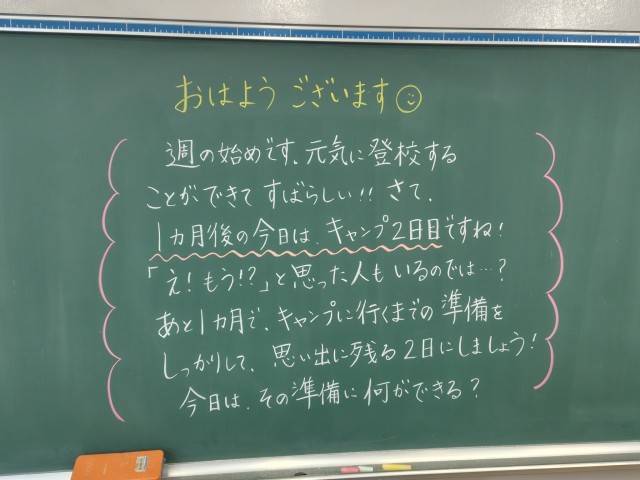 おはようございます
週の始めです。元気に登校する
ことができてすばらしい!! さて、
1カ月後の今日は、キャンプ2日目ですね!
「え!もう!?」と思った人もいるのでは…?
あと1カ月で、キャンプに行くまでの準備を
しっかりして、思い出に残る2日にしましょう!
今日は、その準備に何ができる?